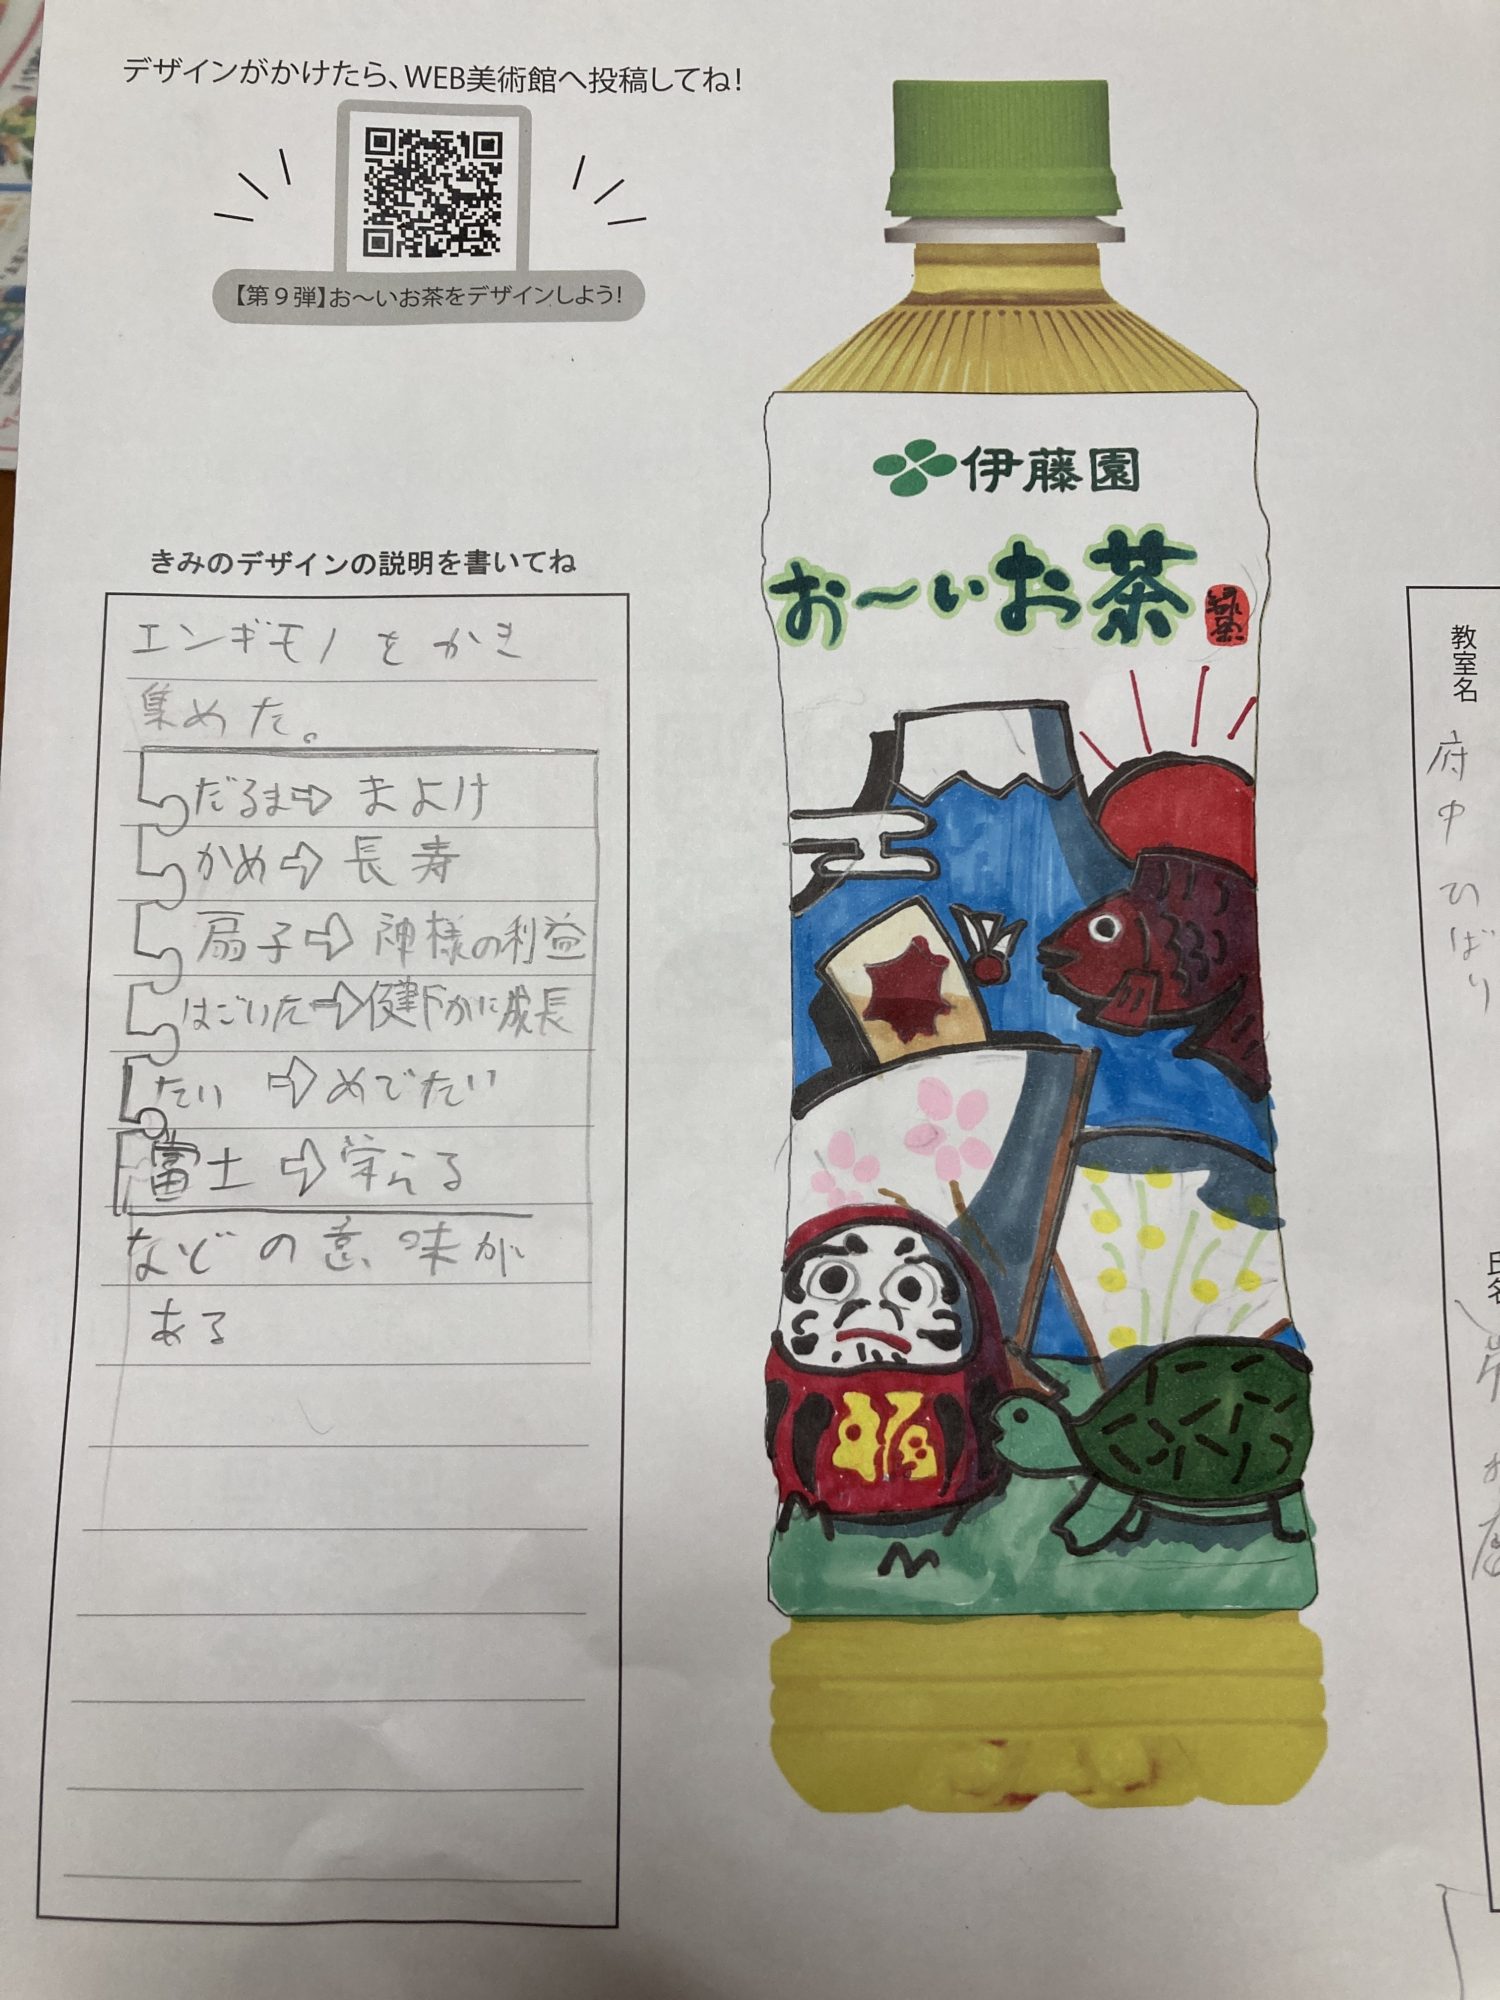 デザインがかけたら、WEB美術館へ投稿してね!
【第9弾】お〜いお茶をデザインしよう!
きみのデザインの説明を書いてね
エンギモノをかき
集めた。
だるま⇨まよけ
かめ⇨長寿
扇子⇨神様の利益
はごいた⇨健下かに成長
たい⇨めでたい
富士⇨栄える
などの意味が
ある
伊藤園
お〜いお茶
緑茶
福
教室名
府中ひばり
氏名